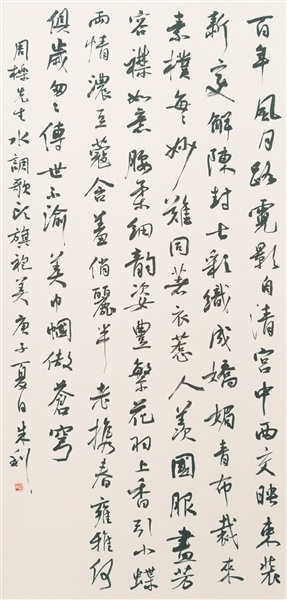 百年風月路霓影自清宮中西交映東裝
新變解陳封七彩織成嬌媚青布裁來
素樸妙難同著衣惹人羡國服盡芳
容襟如意腰柔細韻姿豐繁花羽上香引小蝶
兩情濃豆蔻含羞俏麗半老攜春雍雅何
俱歲匆匆傳世不渝美巾幗傲蒼穹
周先生水調歌頭旗袍美庚子夏日朱利